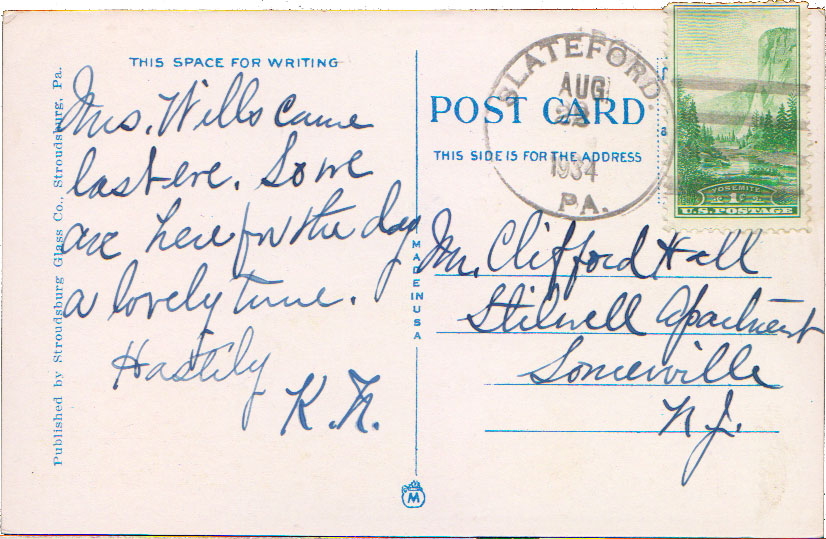 THIS SPACE FOR WRITING
Mrs. Wills came
last eve. So we
are here for the day
a lovely time.
Hastily
K. K.
Published by Stroudsburg Glass Co., Stroudsburg, Pa.
MADE IN USA
M
SLATEFORD.
AUG
1934
PA.
POST CARD
THIS SIDE IS FOR THE ADDRESS
YOSEMITE
1c
U.S. POSTAGE
Mr. Clifford Hall
Stilwell Apartment
Somerville
N.J.